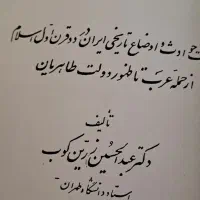 حوادث و اوضاع تاریخی ایران در دو قرن اول اسلام
از حمله عرب تا ظهور دولت طاهریان
تألیف
دکتر عبدالحسین زرین کوب
استاد دانشگاه طهران